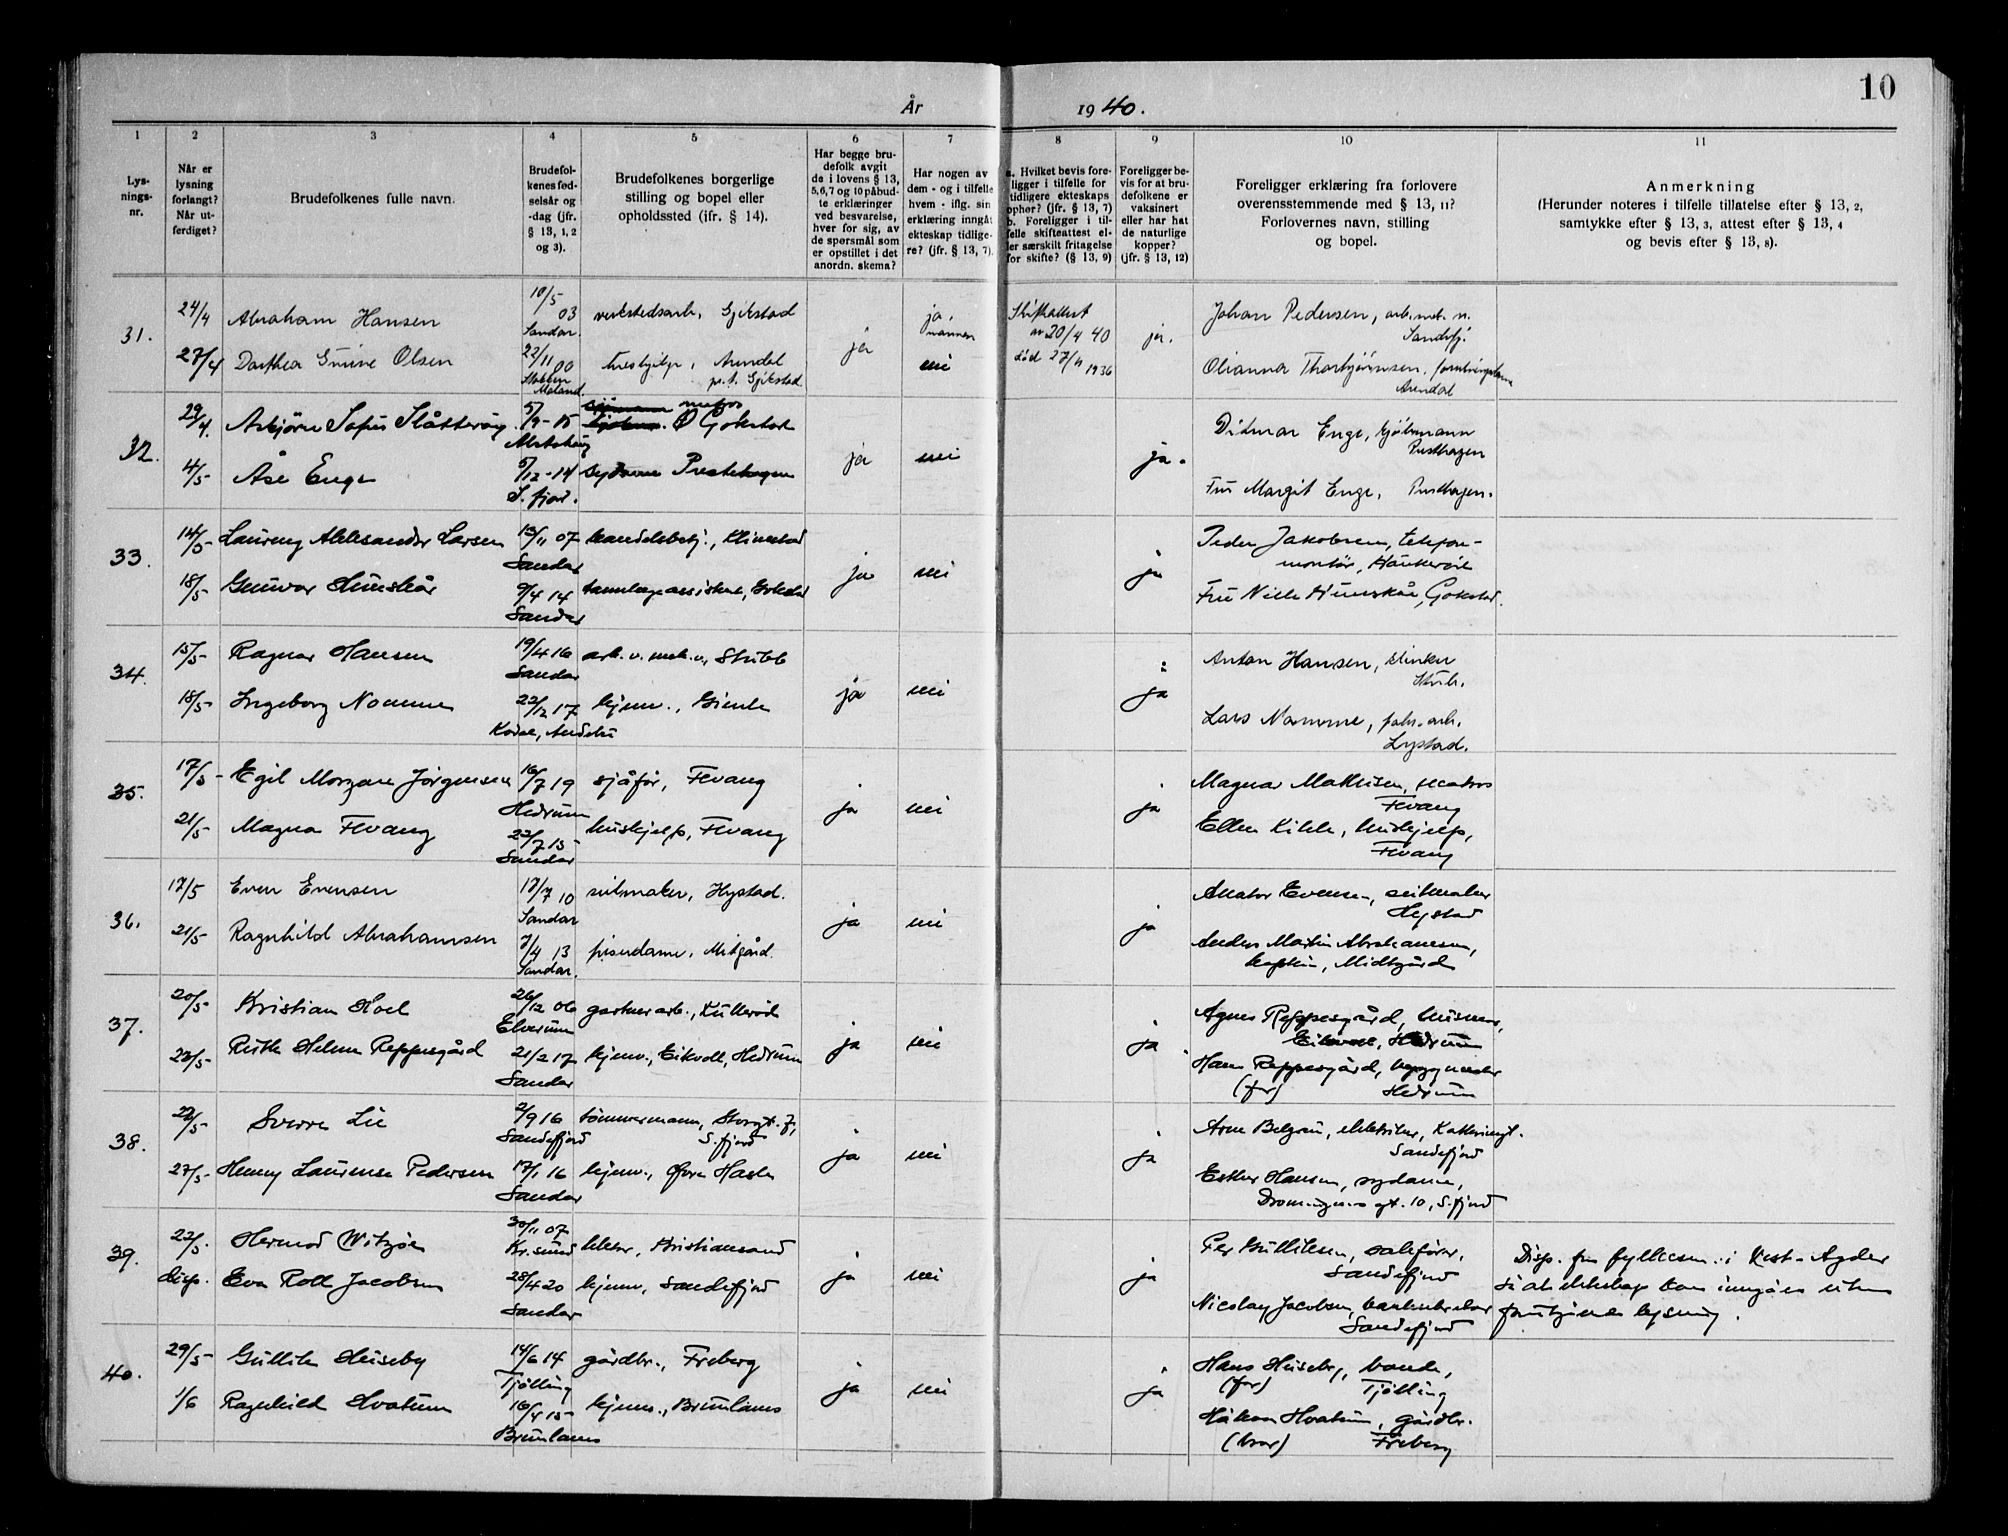 10
År 1940.
1
2
3
4
5
6
7
8
9
10
11
Lys-
nings-
nr.
Når er
lysning
forlangt?
Når ut-
ferdiget?
Brudefolkenes fulle navn.
Brudefol-
kenes fød-
selsår og
-dag (jfr.
§ 13, 1, 2
og 3).
Brudefolkenes borgerlige
stilling og bopel eller
opholdssted (ifr. § 14).
Har begge bru-
defolk avgit
de i lovens § 13,
5, 6, 7 og 10 påbud-
te erklæringer
ved besvarelse,
hver for sig, av
de spørsmål som
er opstillet i det
anordn. skema?
Har nogen av
dem - og i tilfelle
hvem - iflg. sin
erklæring inngått
ekteskap tidlige-
re? (jfr. § 13, 7).
a. Hvilket bevis fore-
ligger i tilfelle for
tidligere ekteskaps
ophør? (jfr. § 13, 7)
b. Foreligger i til-
felle skifteattest el-
ler særskilt fritagelse
for skifte? (§ 13, 9)
Foreligger be-
vis for at bru-
defolkene er
vaksinert
eller har hat
de naturlige
kopper?
(jfr. § 13, 12)
Foreligger erklæring fra forlovere
overensstemmende med § 13, 11?
Forlovernes navn, stilling
og bopel.
Anmerkning
(Herunder noteres i tilfelle tillatelse efter § 13, 2,
samtykke efter § 13, 3, attest efter § 13, 4
og bevis efter § 13, 8).
31.
24/4 Abraham Hansen 10/5 03 Sandar. verkstedsarb., Gjekstad
ja ja, mannen
27/4 Olsen 22/11 00 Arendal
p.t. Gjekstad nei
Skifteattest
av 20/4 40
død 27/4 1936
ja.
Johan Pedersen, arb. mek. v.
Sandefj.
Olianna Thorbjørnsen,
Arendal
32.
29/4. Asbjørn Sofus Slåtterøy 5/9-15 matros Gokstad
4/5 Åse Enge 5/12-14 S. fjord. sydame Prestehagen
ja nei ja.
Ditmar Enge, sjømann
Presthagen
Fru Margit Enge, Presthagen.
33.
14/5 Aleksander Larsen 13/11 07 Sandar handelsbetj.,
18/5 Gunvor Hunskår 9/4 14 Sandar tannlegeassistent, Gokstad
ja nei ja
Peder Jakobsen, telefon-
montør,
Fru Hunskår, Gokstad.
34.
15/5 Ragnar Hansen 19/4 16 Sandar arb. v. mek. v., Stubb
18/5 Ingeborg Nomme 22/12 17 Kodal, Andebu hjemv., Gimle
ja nei ja
Anton Hansen, klinker
Stub.
Lars Nomme, fabr. arb.
Lystad.
35.
17/5 Egil Jørgensen 16/7 19 Hedrum sjåfør, Fevang
21/5 Magna Fevang 22/7 15 Sandar huskjelp, Fevang
ja nei ja
Magnar Mathisen, matros
Fevang
Ellen Kihle, huskjelp,
Fevang
36.
17/5 Even Evensen 17/7 10 Sandar seilmaker, Hystad.
21/5 Ragnhild Abrahamsen 7/4 13 Sandar. frisørdame, Mitgård.
ja nei ja
Anator Evensen, seilmaker
Hystad
Anders Martin Abrahamsen,
kaptein, Midtgård
37.
20/5 Kristian Hoel 26/12 06 Elverum gartnerarb., Kullerød
22/5 Ruth Helene Reppesgård 21/2 17 Sandar hjemv., Eikvoll, Hedrum
ja nei ja
Agnes Reppesgård, husmor,
Eikvoll, Hedrum
Hans Reppesgård, byggmester
(far) Hedrum
38.
22/5 Sverre Lie 2/9 16 Sandefjord tømmermann, Storgt. 7,
S. fjord
27/5 Henny Laurense Pedersen 17/1 16 Sandar hjemv., Øvre Hasle
ja nei ja
Arne Belgau, elektriker,
Sandefjord
Esther Hansen, sydame,
Dronningens gt. 10, S. fjord
39.
22/5. Hermod Witzøe 30/11 07 Kr.sund lektor, Kristiansand
Disp. Eva Roll Jacobsen 28/4 20 Sandar hjemv., Sandefjord
ja nei ja
Per Gulliksen, salsfører,
Sandefjord
Nicolay Jacobsen,
Sandefjord
Disp. fra fylkesm. i Vest-Agder
så at ekteskap kan inngåes uten
forutgående lysning.
40.
29/5 Gullik Huseby 14/6 14 Tjølling gårdbr., Freberg
1/6 Ragnhild Hvatum 16/4 15 Brunlanes hjemv., Brunlanes
ja nei ja
Hans Huseby, bonde,
(far) Tjølling
Håkon Hvatum, gårdbr.
(bror) Freberg